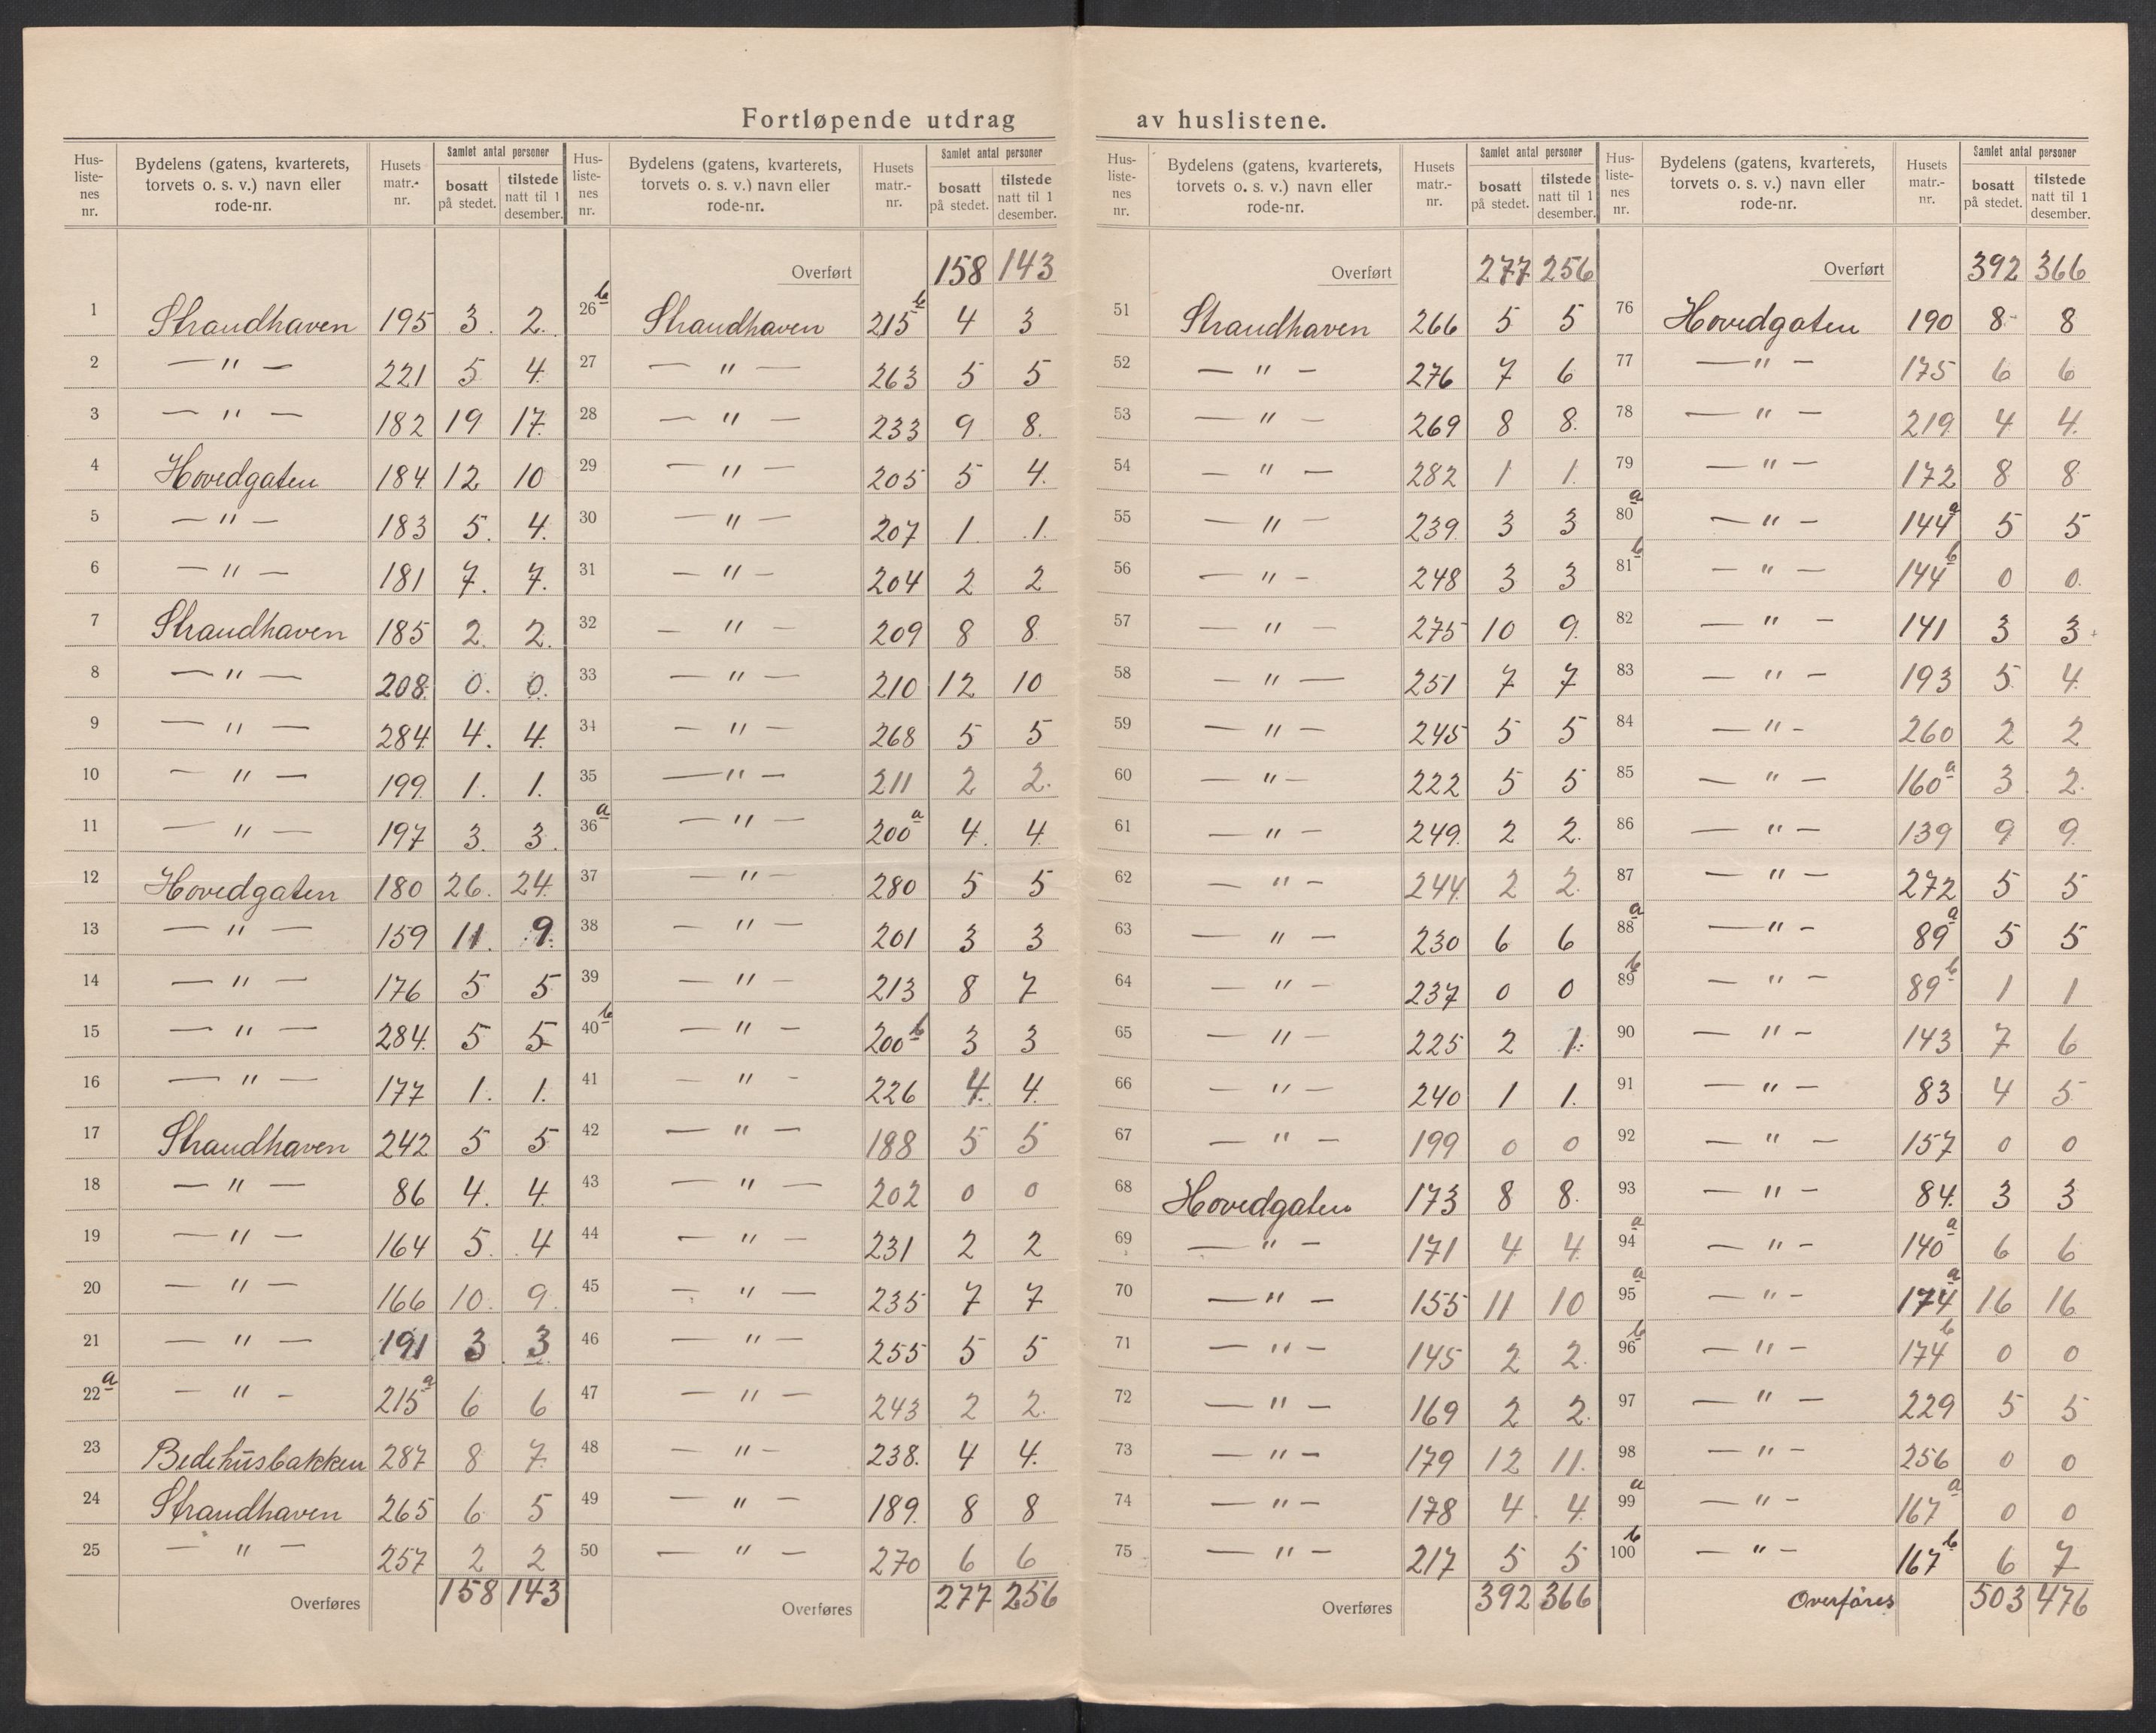 Fortløpende utdrag av huslistene.
Hus-liste-nes nr. | Bydelens (gatens, kvarterets, torvets o. s. v.) navn eller rode-nr. | Husets matr.-nr. | Samlet antal personer bosatt på stedet. | tilstede natt til 1 desember.
1 Strandhaven 195 3. 2.
2 — " — 221 5 4.
3 — " — 182 19 17.
4 Hovedgaten 184. 12 10
5 — " — 183 5. 4.
6 — " — 181 7. 7.
7 Strandhaven 185 2. 2.
8 — " — 208. 0. 0.
9 — " — 284. 4. 4.
10 — " — 199. 1. 1.
11 — " — 197 3. 3.
12 Hovedgaten 180 26. 24.
13 — " — 159 11. 9.
14 — " — 176 5 5
15 — " — 284. 5 5
16 — " — 177 1. 1.
17 Strandhaven 242 5 5
18 — " — 86 4. 4.
19 — " — 164 5. 4
20 — " — 166 10. 9.
21 — " — 191 3 3
22a — " — 215a 6 6
23 Bedehusbakken 287 8 7.
24 Strandhaven 265 6 5
25 — " — 257 2 2
Overføres 158 143
Hus-liste-nes nr. | Bydelens (gatens, kvarterets, torvets o. s. v.) navn eller rode-nr. | Husets matr.-nr. | Samlet antal personer bosatt på stedet. | tilstede natt til 1 desember.
Overført 158 143
26b Strandhaven 215b 4 3
27 — " — 263 5 5
28 — " — 233 9 8.
29 — " — 205 5 4.
30 — " — 207 1. 1.
31 — " — 204 2 2
32 — " — 209 8 8
33 — " — 210 12 10
34 — " — 268 5 5
35 — " — 211 2 2.
36a — " — 200a 4. 4.
37 — " — 280 5 5
38 — " — 201 3 3
39 — " — 213 8 7
40b — " — 200b 3 3
41 — " — 226 4. 4.
42 — " — 188 5 5
43 — " — 202 0 0
44 — " — 231 2 2
45 — " — 235 7 7
46 — " — 255 5 5
47 — " — 243 2 2.
48 — " — 238. 4 4.
49 — " — 189. 8 8
50 — " — 270 6 6
Overføres 277 256
Hus-liste-nes nr. | Bydelens (gatens, kvarterets, torvets o. s. v.) navn eller rode-nr. | Husets matr.-nr. | Samlet antal personer bosatt på stedet. | tilstede natt til 1 desember.
Overført 277 256
51 Strandhaven 266 5 5
52 — " — 276 7 6
53 — " — 269 8 8.
54 — " — 282 1 1.
55 — " — 239. 3 3
56 — " — 248 3 3
57 — " — 275 10 9.
58 — " — 251 7 7
59 — " — 245 5 5
60 — " — 222 5 5
61 — " — 249. 2 2.
62 — " — 244. 2 2.
63 — " — 230 6 6
64 — " — 237 0 0
65 — " — 225 2 1.
66 — " — 240 1 1.
67 — " — 199 0 0
68 Hovedgaten 173 8 8.
69 — " — 171 4 4.
70 — " — 155 11 10
71 — " — 145 2 2.
72 — " — 169 2 2.
73 — " — 179 12 11.
74 — " — 178 4. 4.
75 — " — 217 5 5
Overføres 392 366
Hus-liste-nes nr. | Bydelens (gatens, kvarterets, torvets o. s. v.) navn eller rode-nr. | Husets matr.-nr. | Samlet antal personer bosatt på stedet. | tilstede natt til 1 desember.
Overført 392 366
76 Hovedgaten 190 8 8
77 — " — 175 6 6
78 — " — 219. 4 4.
79 — " — 172 8 8
80a — " — 144a 5 5
81b — " — 144b 0 0.
82 — " — 141 3 3
83 — " — 193 5 4.
84 — " — 260 2 2
85 — " — 160a 3 2.
86 — " — 139 9 9.
87 — " — 272 5 5
88a — " — 89a 5 5
89b — " — 89b 1 1
90 — " — 143 7 6
91 — " — 83 4 5
92 — " — 157 0 0
93 — " — 84. 3 3
94a — " — 140a 6 6
95a — " — 174a 16 16
96b — " — 174b 0 0
97 — " — 229 5 5
98 — " — 256 0 0
99a — " — 167a 0 0
100b — " — 167b 6 7
Overføres 503 476